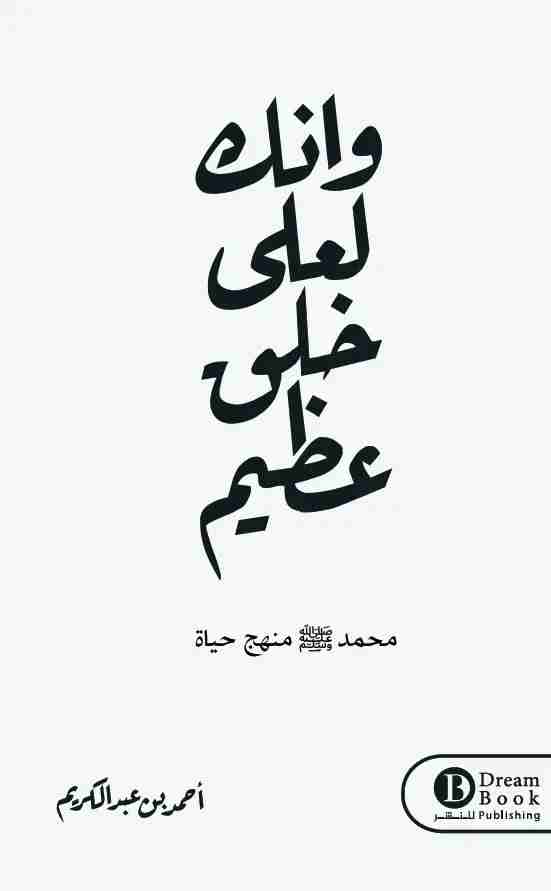 وانك
لعلى
خلق
عظيم
محمد ﷺ منهج حياة
أحمد بن عبدالكريم
Dream
Book
للنشر Publishing